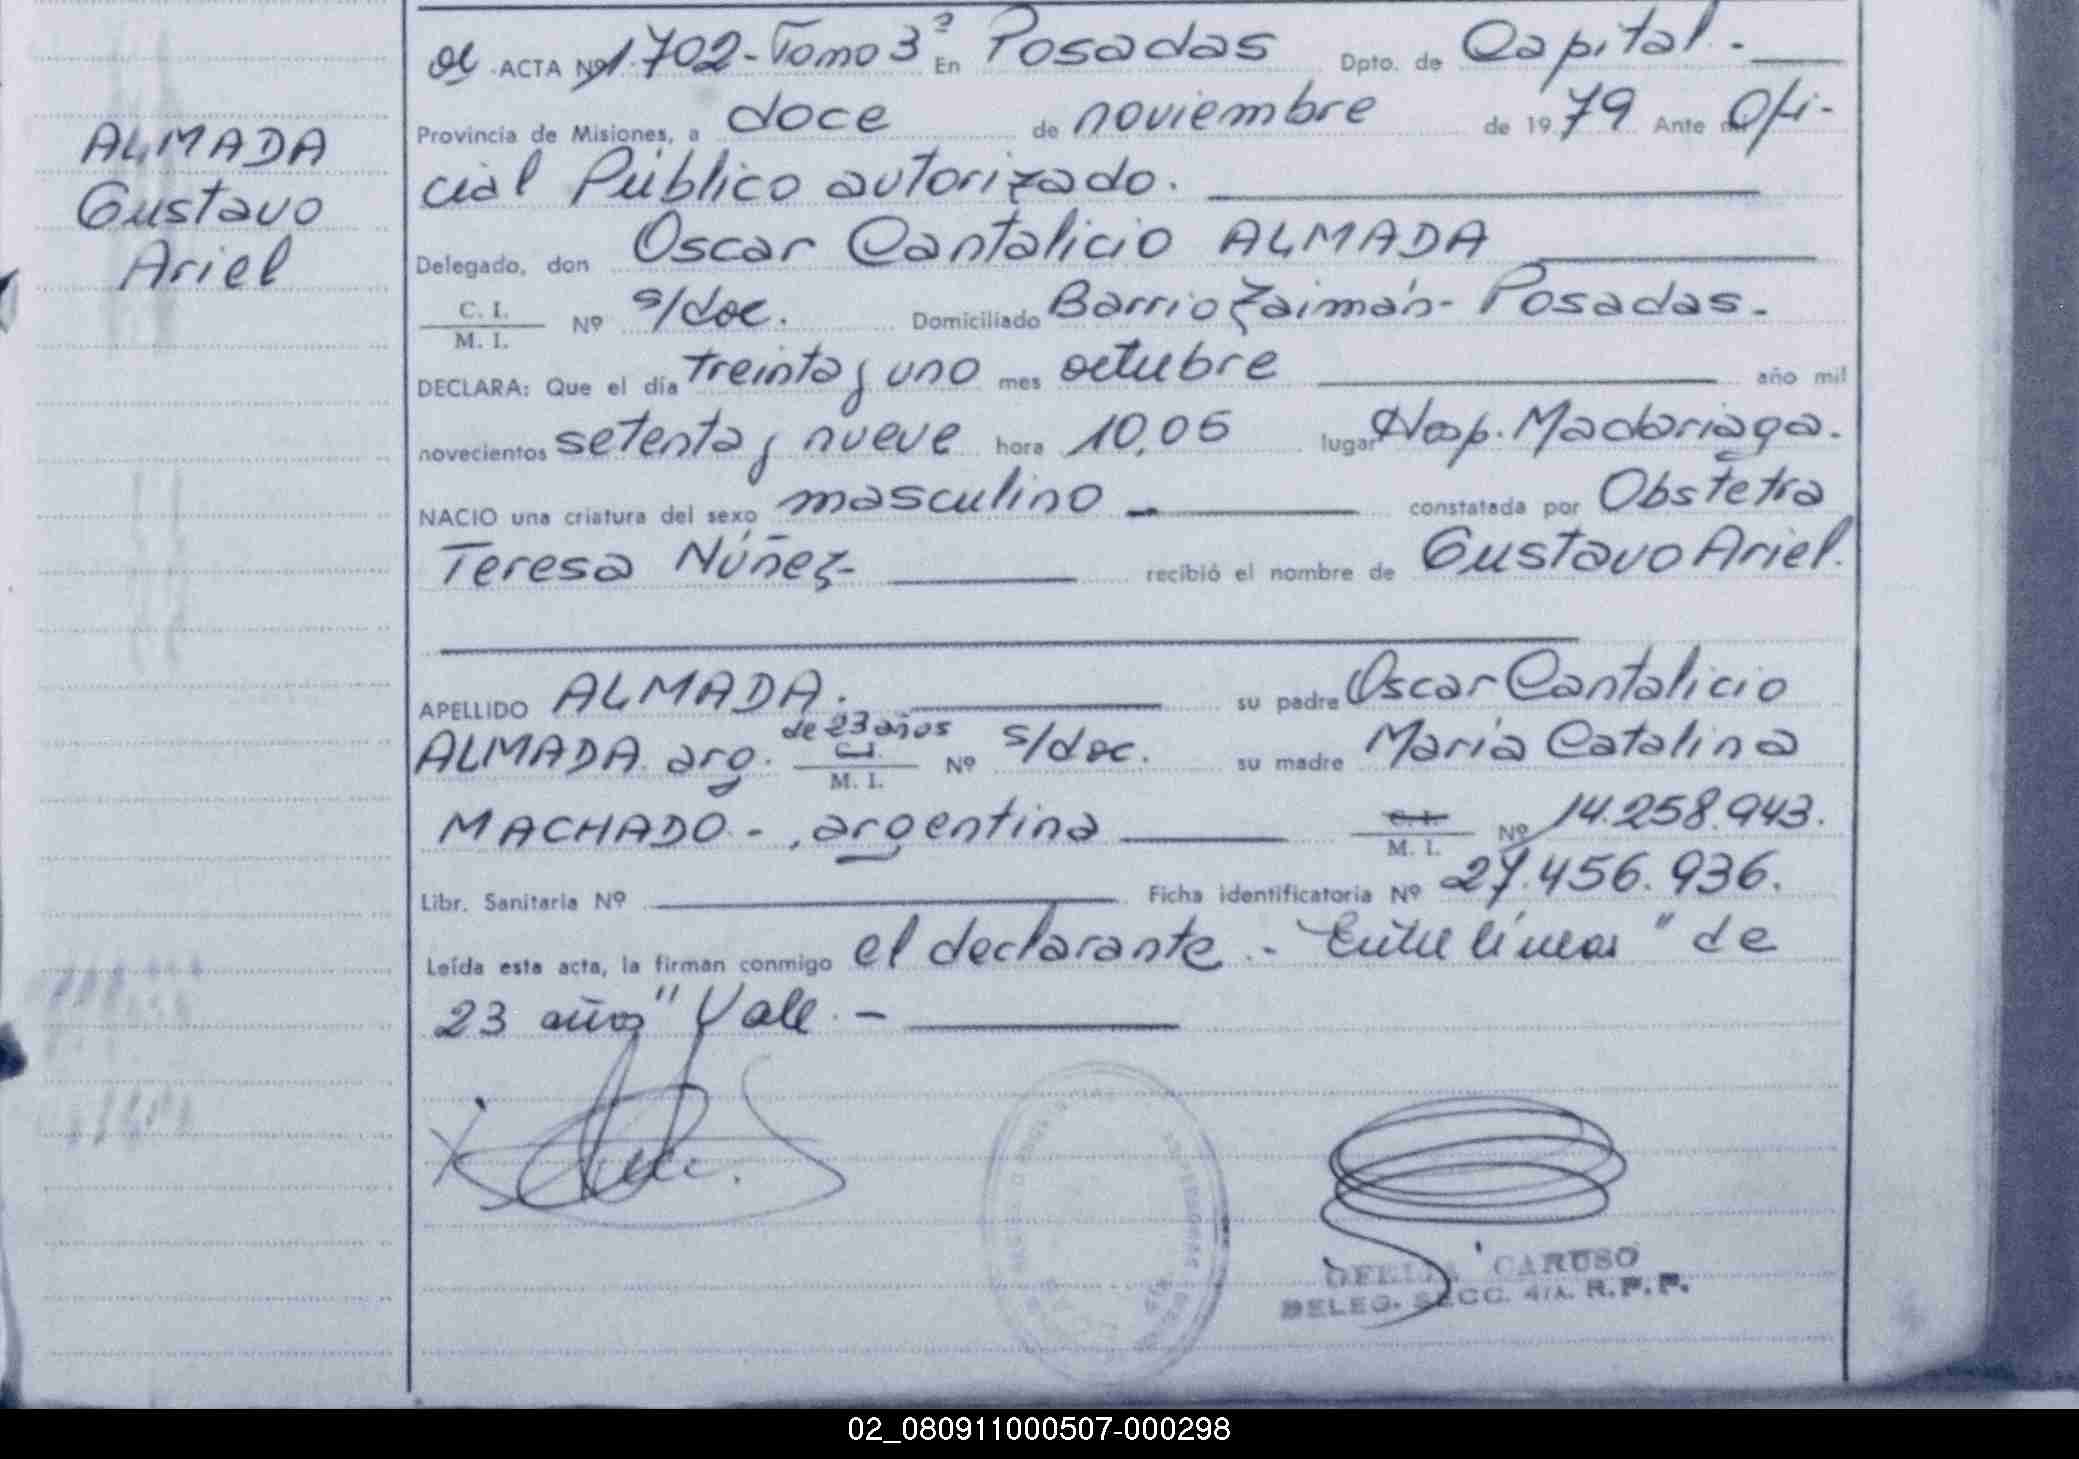 ALMADA
Gustavo
Ariel
ACTA Nº 1.702 - Tomo 3º En Posadas Dpto. de Capital. -
Provincia de Misiones, a doce de noviembre de 1979 Ante Ofi-
cial Público autorizado.
Delegado, don Oscar Cantalicio ALMADA
C. I.
M. I. Nº s/doc. Domiciliado Barrio Zaimán - Posadas.
DECLARA: Que el día treinta y uno mes octubre año mil
novecientos setenta y nueve hora 10,05 lugar Hosp. Madariaga.
NACIO una criatura del sexo masculino - constatada por Obstetra
Teresa Núñez- recibió el nombre de Gustavo Ariel.
APELLIDO ALMADA. su padre Oscar Cantalicio
de 23 años
ALMADA. arg. C.I. M. I. Nº s/doc. su madre María Catalina
MACHADO -, argentina C. I. M. I. Nº 14.258.943.
Libr. Sanitaria Nº Ficha identificatoria Nº 27.456.936.
Leída esta acta, la firman conmigo el declarante. - Entre líneas " de
23 años" Vale. -
CARUSO
DELEG. SECC. 4ta. R.P.P.
02_080911000507-000298